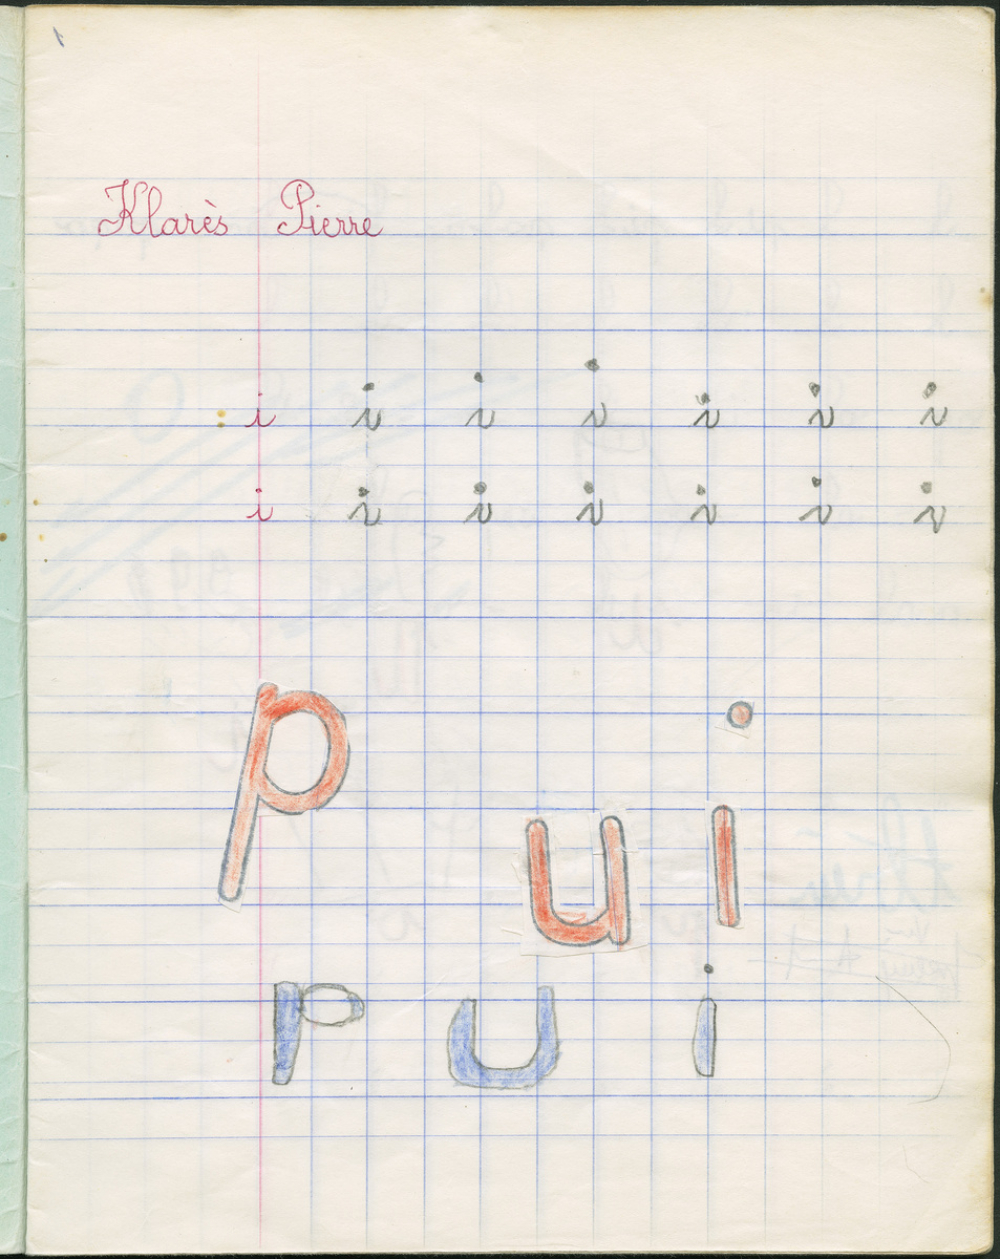 Klarès Pierre
i i i i i i i
i i i i i i i
p u i
p u i